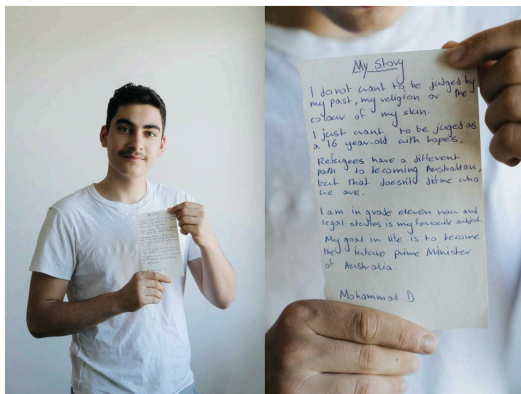 My Story
I do not want to be judged by
my past, my religion or the
colour of my skin.
I just want to be juged as
a 16 year old with hopes.
Refugees have a different
path to becoming Australian,
but that doesn't define who
we are.
I am in grade eleven now and
legal studies is my favourite subject
My goal in life is to become
the future prime Minister
of Australia.
Mohammad D